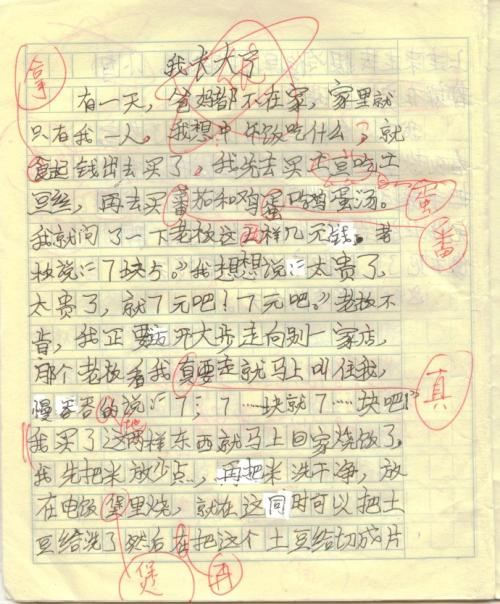 我长大了
有一天，爸妈都不在家，家里就
只有我一人，我想中午饭吃什么，就
拿起钱出去买了。我先去买土豆吃土
豆丝，再去买番茄和鸡蛋吃鸡蛋汤。
我就问了一下老板这两样几元钱。老
板说：“7块5。”我想想说：“太贵了，
太贵了，就7元吧！7元吧。”老板不
肯，我正要 开大步走向别一家店，
那个老板看我真要走就马上叫住我，
慢吞吞的说：“7，7……块就7……块吧！”
我买了这两样东西就马上回家烧饭了，
我先把米放少点，再把米洗干净，放
在电饭 里烧，就在这同时可以把土
豆给洗了然后在把这个土豆给切成片
拿
蛋
番
真
地
煲
再